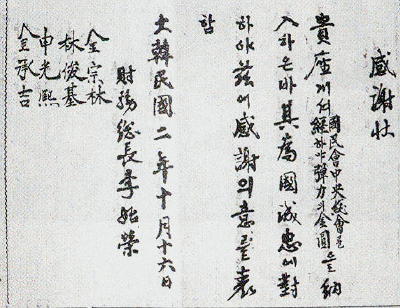 感謝狀
貴座게셔 國民會中央總會로
經하야 金圓을 納
入하온바 其爲國誠忠에 對
하야 玆에 感謝의 意를 表
함
大韓民國二年十月十六日
財務總長 李始榮
金宗林
林俊基
申光熙
金承吉